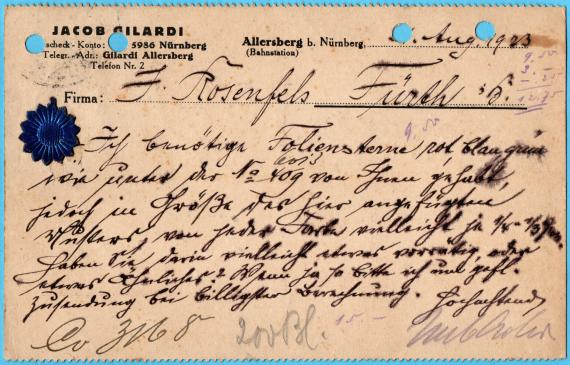 JACOB GILARDI
scheck-Konto: 5986 Nürnberg
Telegr.-Adr.: Gilardi Allersberg
Telefon Nr. 2
Allersberg b. Nürnberg, Aug. 1923
(Bahnstation)
9,00
Firma: J. Rosenfels Fürth i/B.
9,00
Ich benötige Foliensterne, rot, blau, grün
wie unter der No 409 von Ihnen gehabt,
jedoch in Größe des hier angefügten
Musters von jeder Farbe vielleicht je 1/4 - 1/2
Haben Sie darin vielleicht etwas vorrätig, oder
etwas Ähnliches? Wenn ja so bitte ich um gefl.
Zusendung bei billigster Berechnung. Hochachtend
Co 3168 200 Bl. 15.-